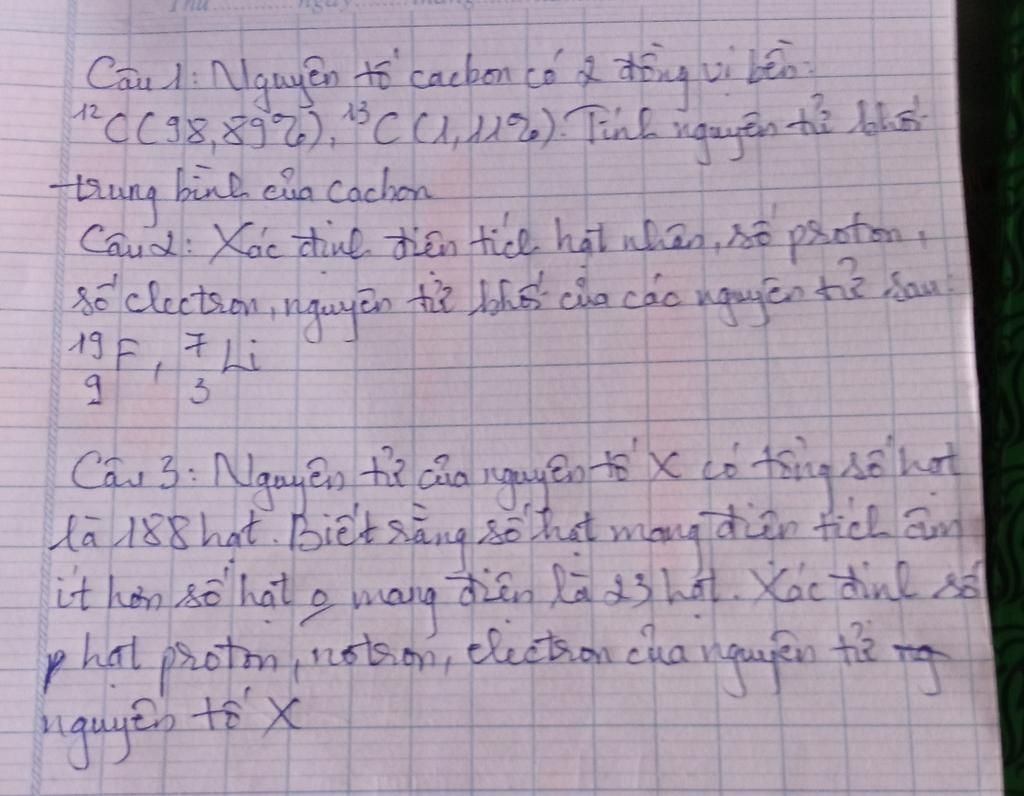 Thứ ngày tháng
Câu 1: Nguyên tố cacbon có 2 đồng vị bền:
¹²C (98,89%), ¹³C (1,11%). Tính nguyên tử khối
trung bình của cacbon
Câu 2: Xác định điện tích hạt nhân, số proton,
số electron, nguyên tử khối của các nguyên tử sau:
19 F, 7 Li
9 3
Câu 3: Nguyên tử của nguyên tố X có tổng số hạt
là 188 hạt. Biết rằng số hạt mang điện tích âm
ít hơn số hạt o mang điện là 23 hạt. Xác định số
hạt proton, nơtron, electron của nguyên tử
nguyên tố X